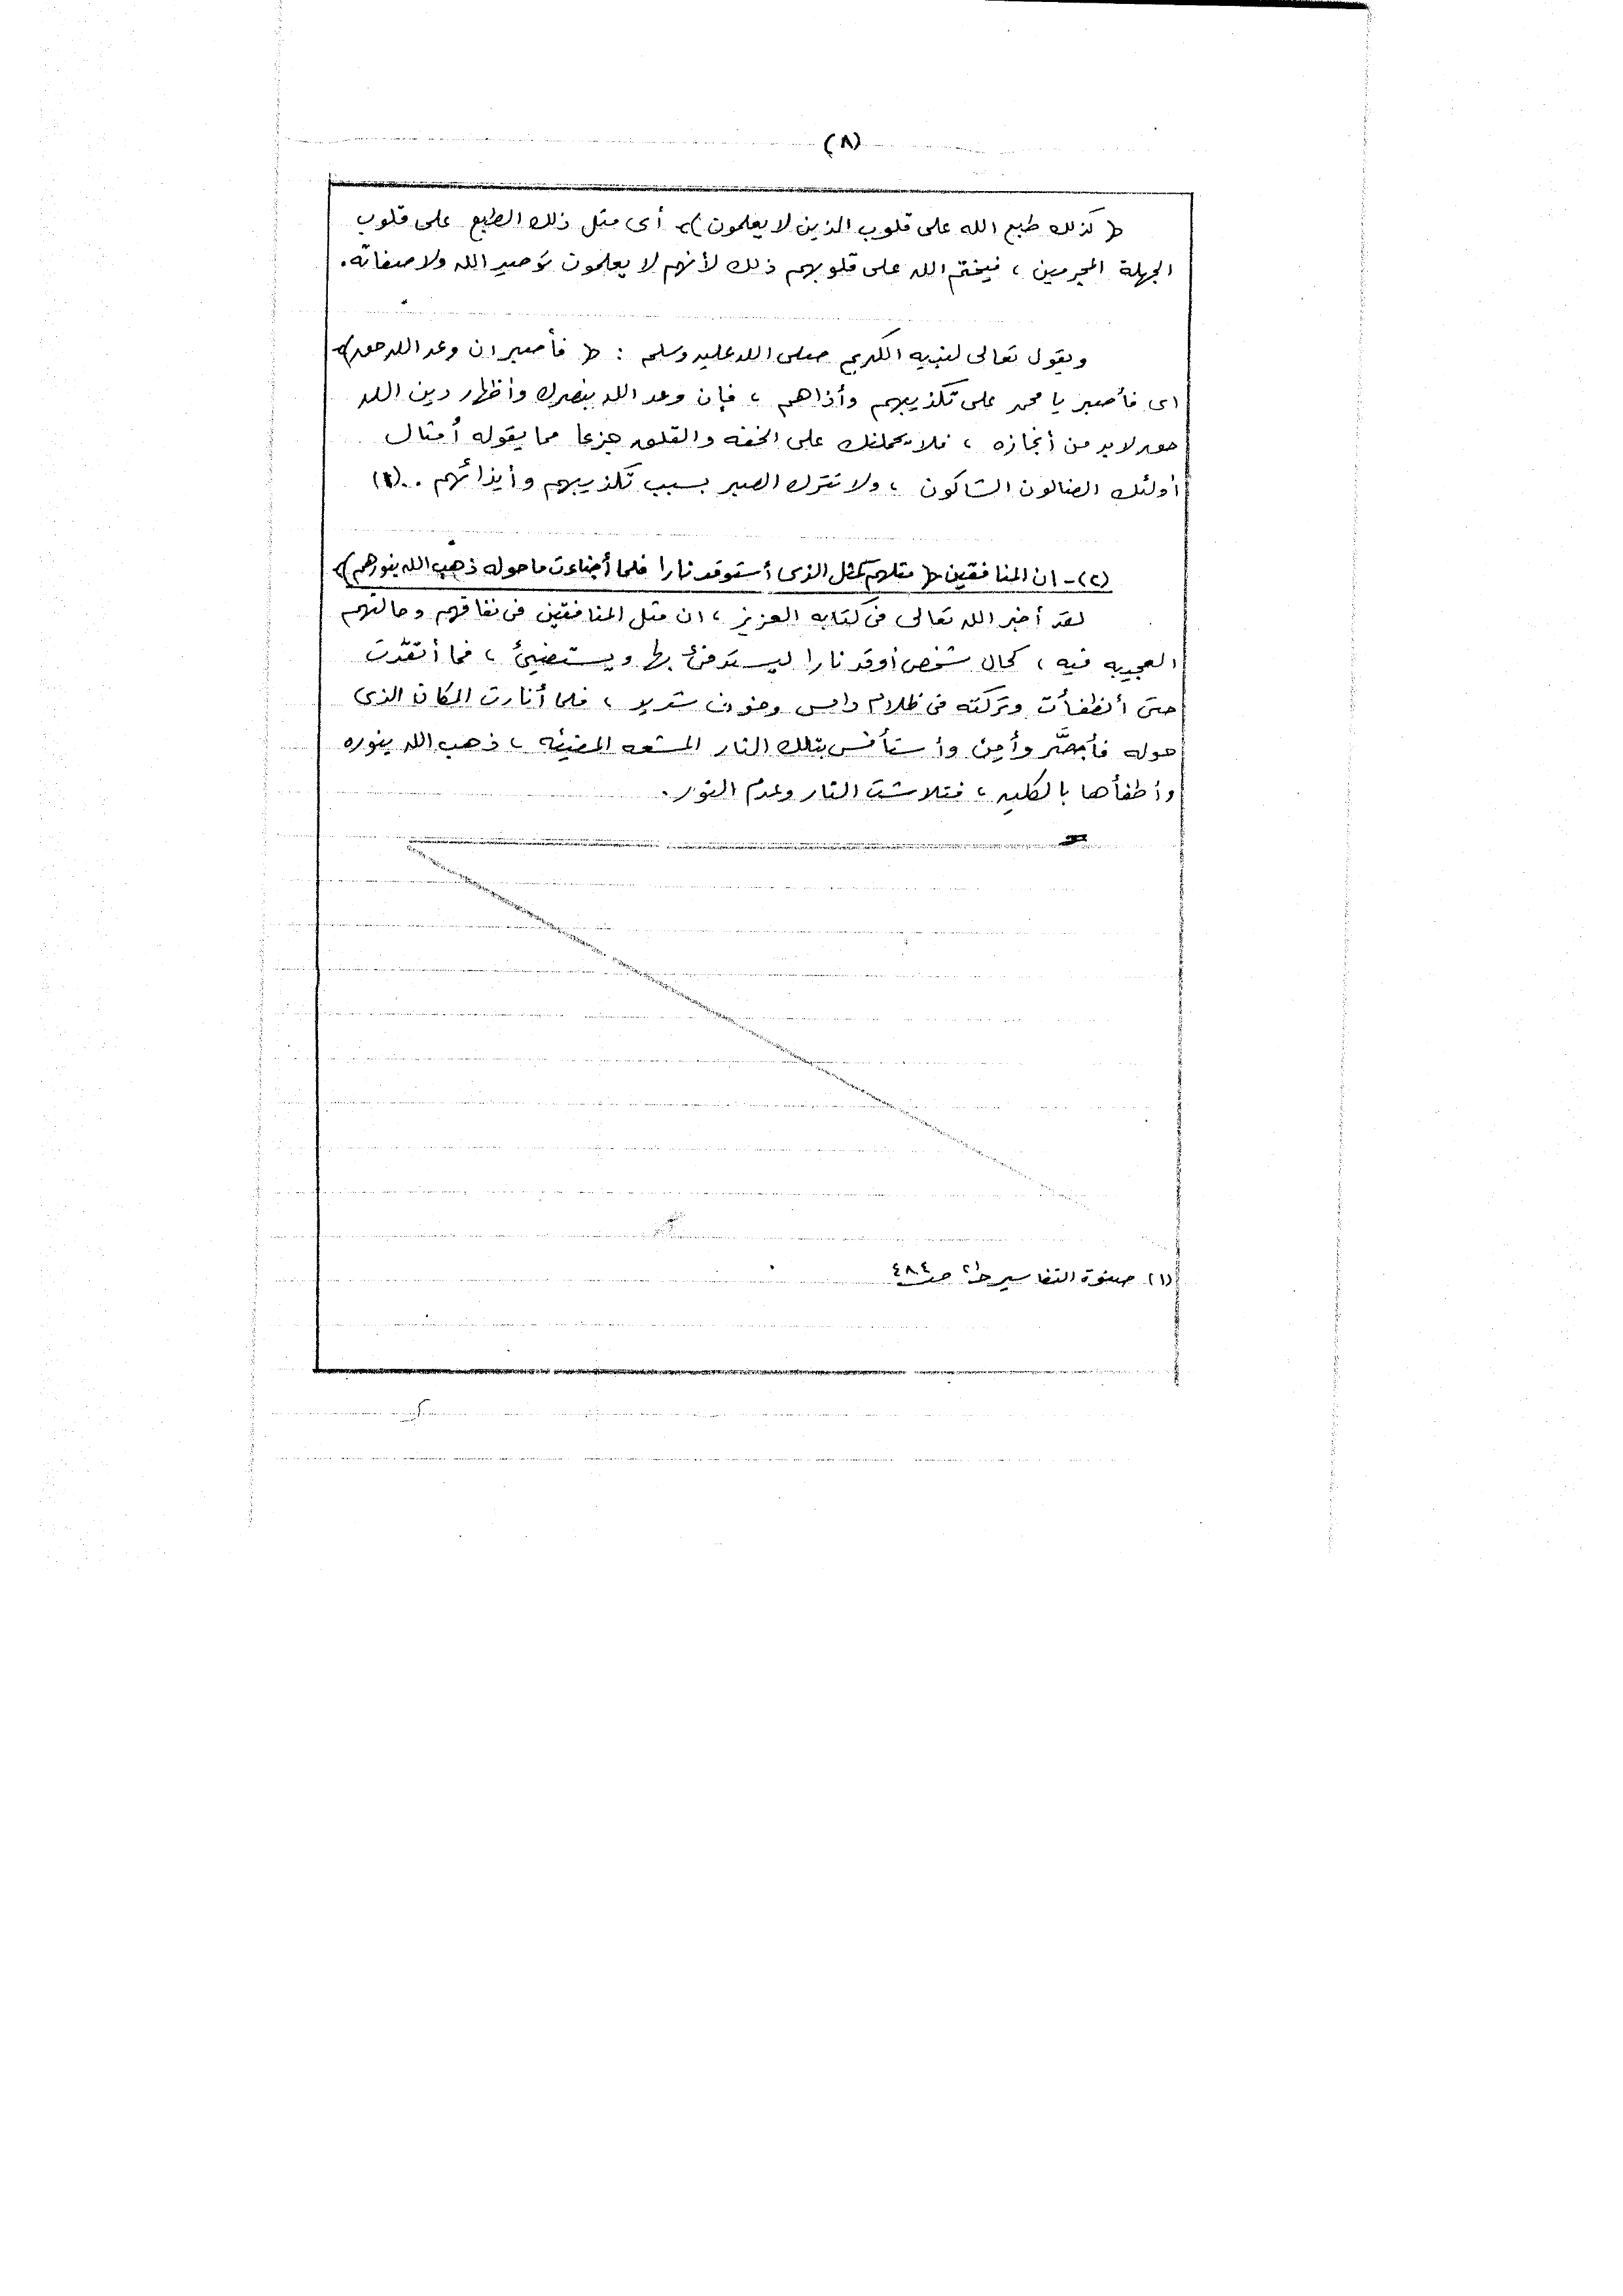 (٨)
﴿ كذلك طبع الله على قلوب الذين لا يعلمون ﴾ أى مثل ذلك الطبع على قلوب
الجهلة المجرمين ، فيختم الله على قلوبهم ذلك لأنهم لا يعلمون توحيد الله ولا صفاته .
ويقول تعالى لنبيه الكريم صلى الله عليه وسلم : ﴿ فأصبر ان وعد الله حق ﴾
اى فأصبر يا محمد على تكذيبهم وأذاهم ، فإن وعد الله بنصرك وأظهار دين الله
حق لا بد من أنجازه ، فلا يحملنك على الخفه والقلق جزعا مما يقوله أمثال
أولئك الضالون الشاكون ، ولا تترك الصبر بسبب تكذيبهم وأيذائهم . . (١)
(٢) - ان المنافقين ﴿ مثلهم كمثل الذى أستوقد نارا فلما أضاءت ما حوله ذهب الله بنورهم ﴾
لقد أخبر الله تعالى فى كتابه العزيز ، ان مثل المنافقين فى نفاقهم وحالتهم
العجيبه فيه ، كحال شخص أوقد نارا ليستدفئ بها ويستضيئ ، فما أتقدت
حتى أنطفأت وتركته فى ظلام دامس وخوف شديد ، فلما أنارت المكان الذى
حوله فأبصَر وأمِن وأستأنس بتلك النار المشعه المضيئه ، ذهب الله بنوره
وأطفأها بالكليه ، فتلاشت النار وعدم النور .
(١) صفوة التفاسير حـ٢ صـ ٤٨٤